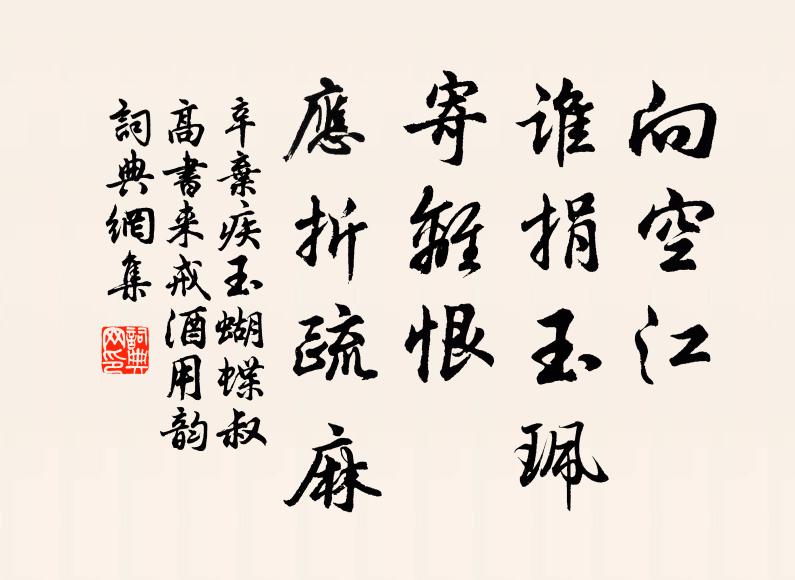 向空江
誰捐玉珮
寄離恨
應折疏麻
辛棄疾玉蝴蝶叔
高書来戒酒用韵
詞典網集
詞典
网印